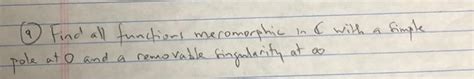 (9) Find all functions meromorphic in ℂ with a simple
pole at 0 and a removable singularity at ∞